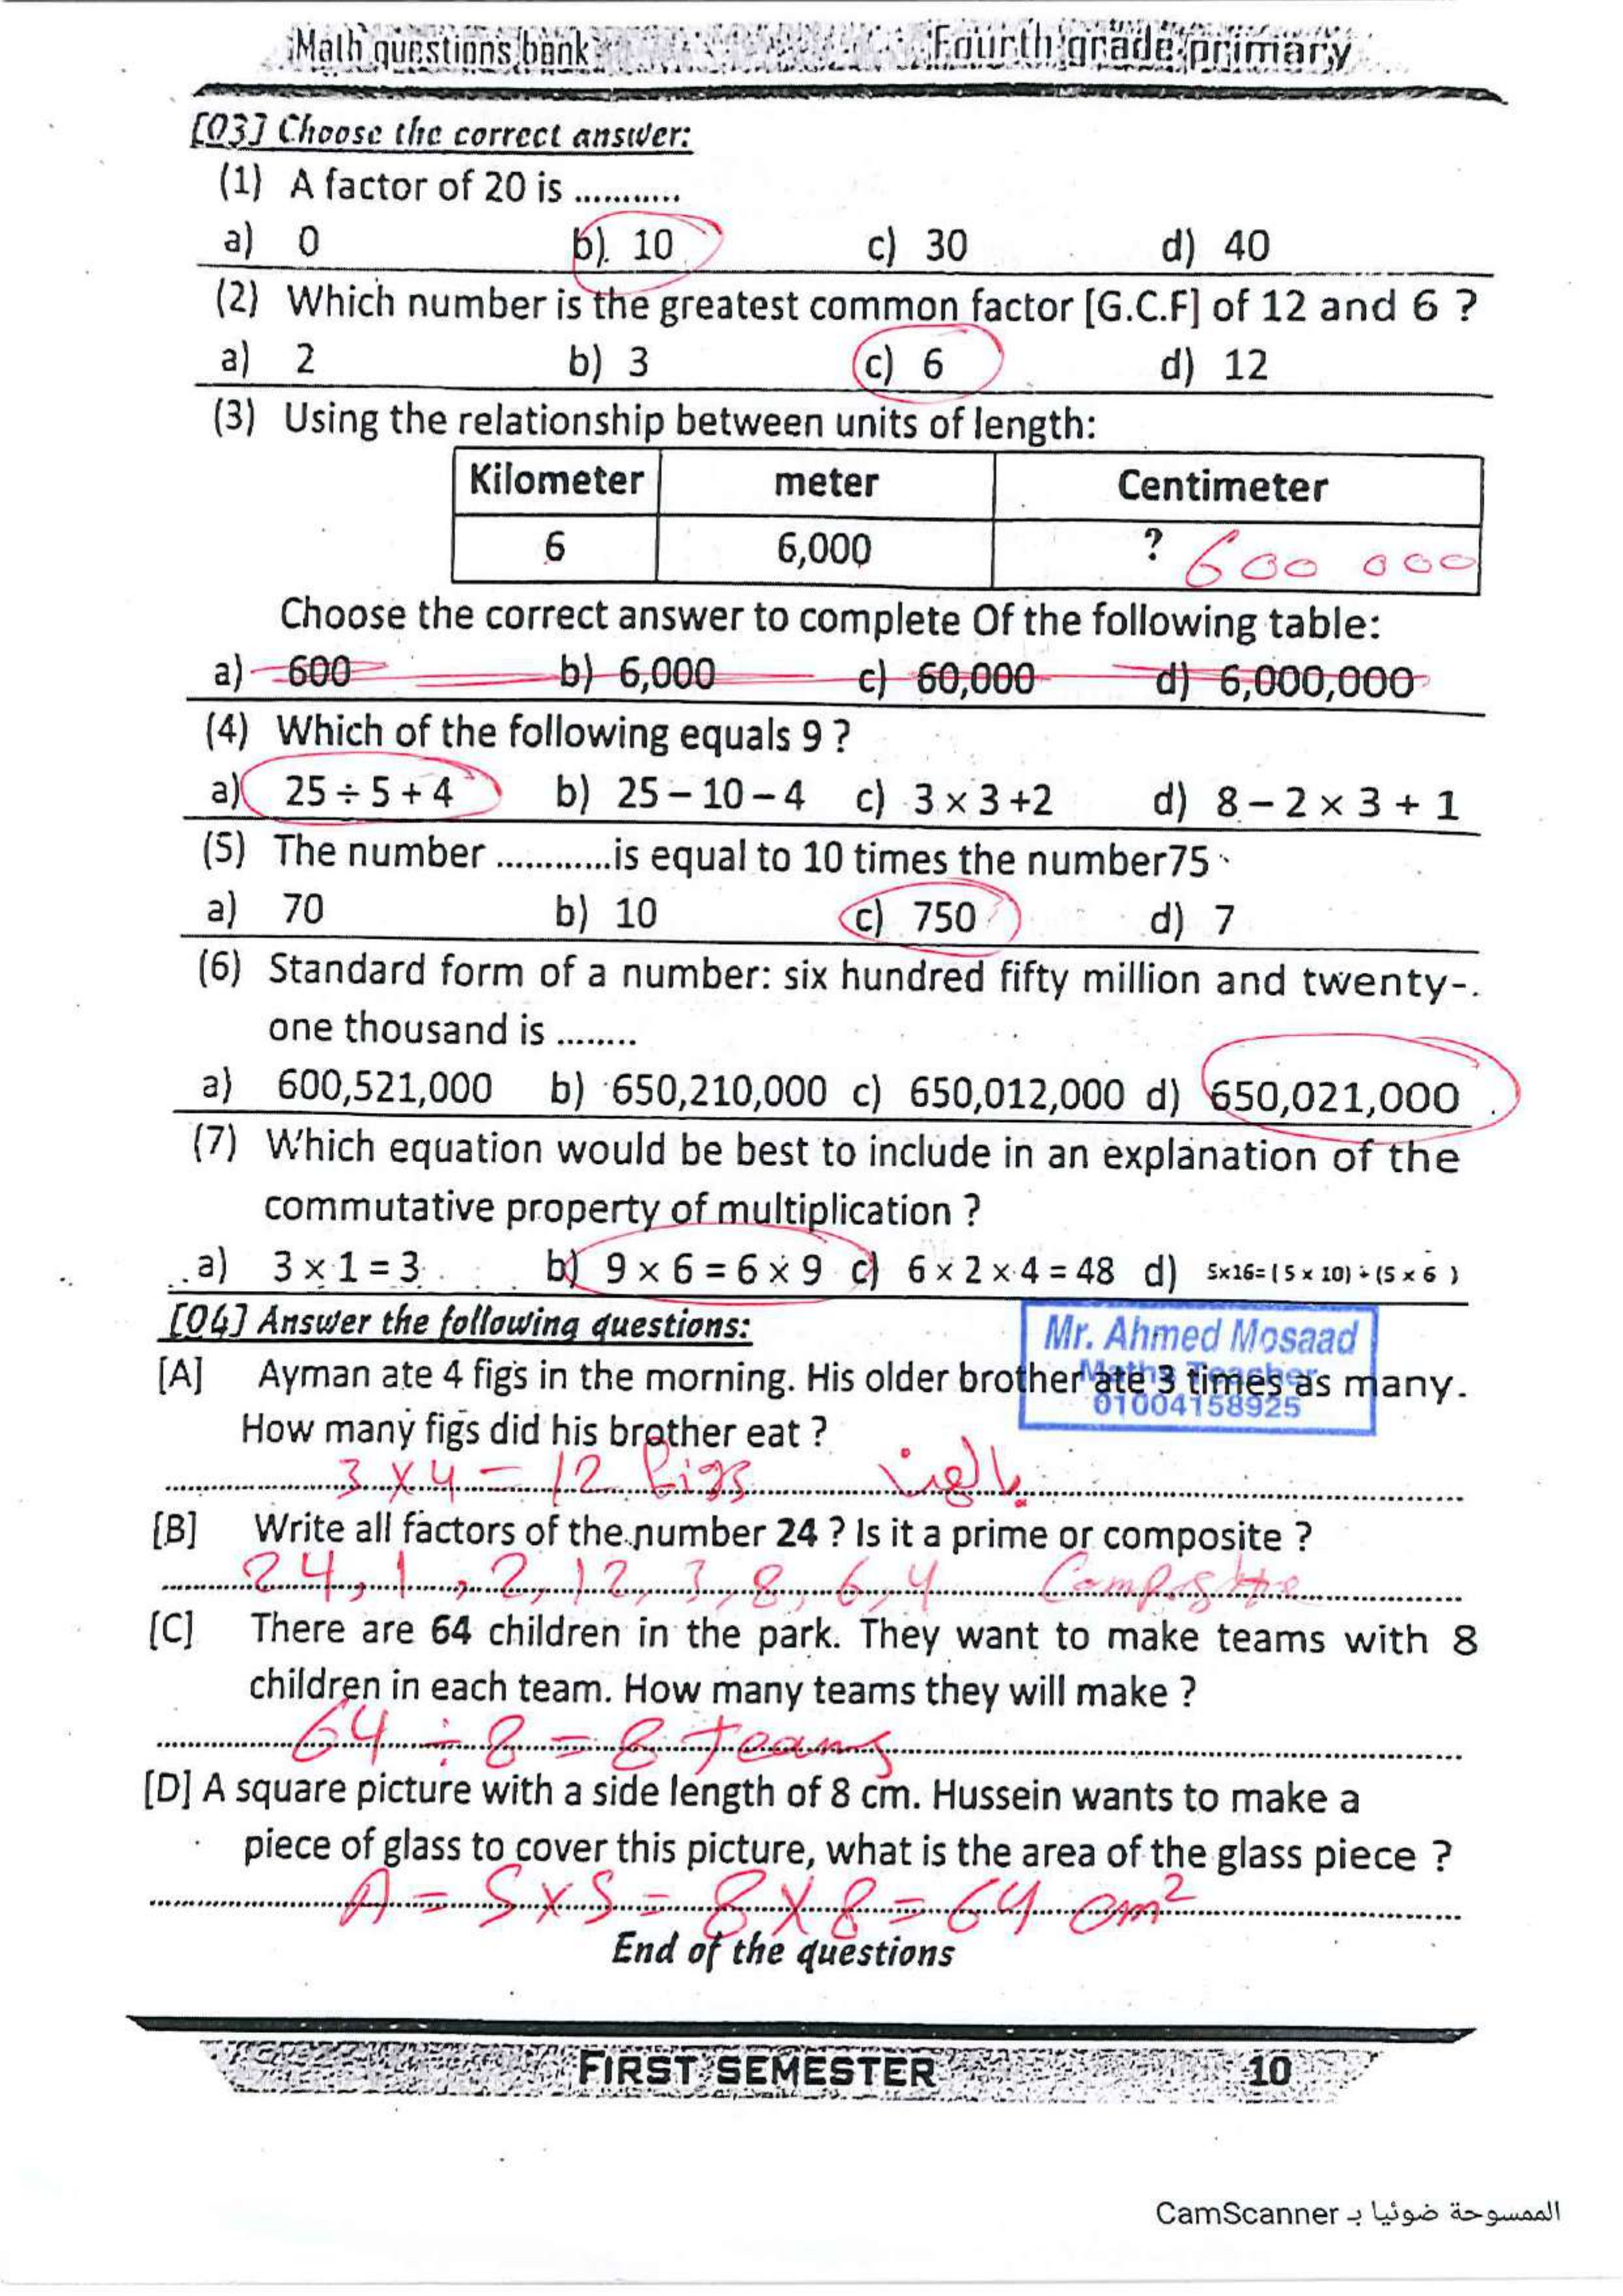 Math questions bank Fourth grade primary
[03] Choose the correct answer:
(1) A factor of 20 is ...........
a) 0 b). 10 c) 30 d) 40
(2) Which number is the greatest common factor [G.C.F] of 12 and 6 ?
a) 2 b) 3 c) 6 d) 12
(3) Using the relationship between units of length:
Kilometer meter Centimeter
6 6,000 ? 600 000
Choose the correct answer to complete Of the following table:
a) 600 b) 6,000 c) 60,000 d) 6,000,000
(4) Which of the following equals 9 ?
a) 25 ÷ 5 + 4 b) 25 – 10 – 4 c) 3 × 3 +2 d) 8 – 2 × 3 + 1
(5) The number ............is equal to 10 times the number75
a) 70 b) 10 c) 750 d) 7
(6) Standard form of a number: six hundred fifty million and twenty-
one thousand is ........
a) 600,521,000 b) 650,210,000 c) 650,012,000 d) 650,021,000
(7) Which equation would be best to include in an explanation of the
commutative property of multiplication ?
a) 3 × 1 = 3 b) 9 × 6 = 6 × 9 c) 6 × 2 × 4 = 48 d) 5×16= ( 5 × 10) ÷ (5 × 6 )
[04] Answer the following questions:
Mr. Ahmed Mosaad
Maths Teacher
01004158925
[A] Ayman ate 4 figs in the morning. His older brother ate 3 times as many.
How many figs did his brother eat ?
3 × 4 = 12 figs بالهنا
[B] Write all factors of the number 24 ? Is it a prime or composite ?
24, 1, 2, 12, 3, 8, 6, 4 Composite
[C] There are 64 children in the park. They want to make teams with 8
children in each team. How many teams they will make ?
64 ÷ 8 = 8 teams
[D] A square picture with a side length of 8 cm. Hussein wants to make a
piece of glass to cover this picture, what is the area of the glass piece ?
A = S × S = 8 × 8 = 64 cm²
End of the questions
FIRST SEMESTER 10
الممسوحة ضوئيا بـ CamScanner